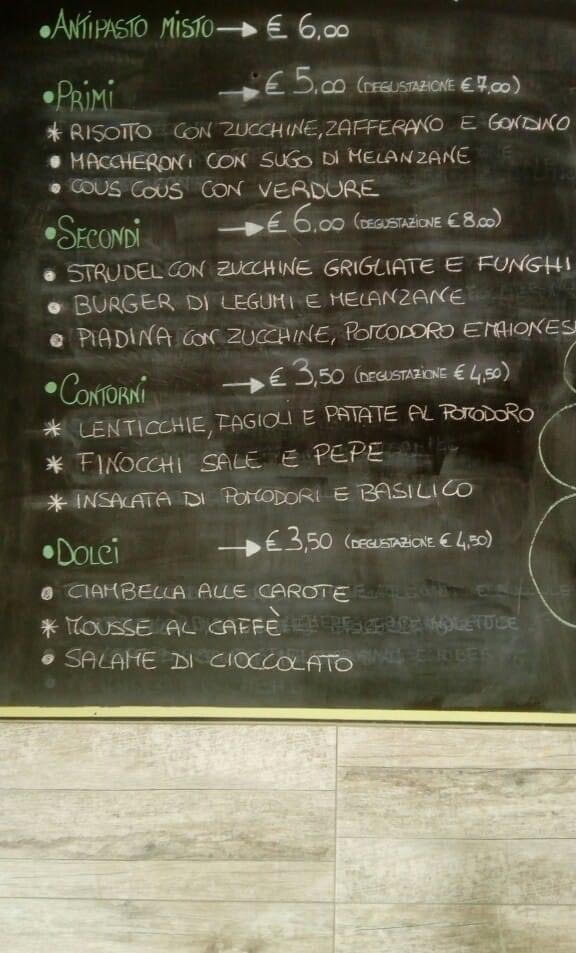 • ANTIPASTO MISTO → € 6,00
• PRIMI → € 5,00 (DEGUSTAZIONE € 7,00)
* RISOTTO CON ZUCCHINE, ZAFFERANO E GONDINO
• MACCHERONI CON SUGO DI MELANZANE
• COUS COUS CON VERDURE
• SECONDI → € 6,00 (DEGUSTAZIONE € 8,00)
• STRUDEL CON ZUCCHINE GRIGLIATE E FUNGHI
• BURGER DI LEGUMI E MELANZANE
• PIADINA CON ZUCCHINE, POMODORO E MAIONES
• CONTORNI → € 3,50 (DEGUSTAZIONE € 4,50)
* LENTICCHIE, FAGIOLI E PATATE AL POMODORO
* FINOCCHI SALE E PEPE
* INSALATA DI POMODORI E BASILICO
• DOLCI → € 3,50 (DEGUSTAZIONE € 4,50)
• CIAMBELLA ALLE CAROTE
* MOUSSE AL CAFFÈ
• SALAME DI CIOCCOLATO